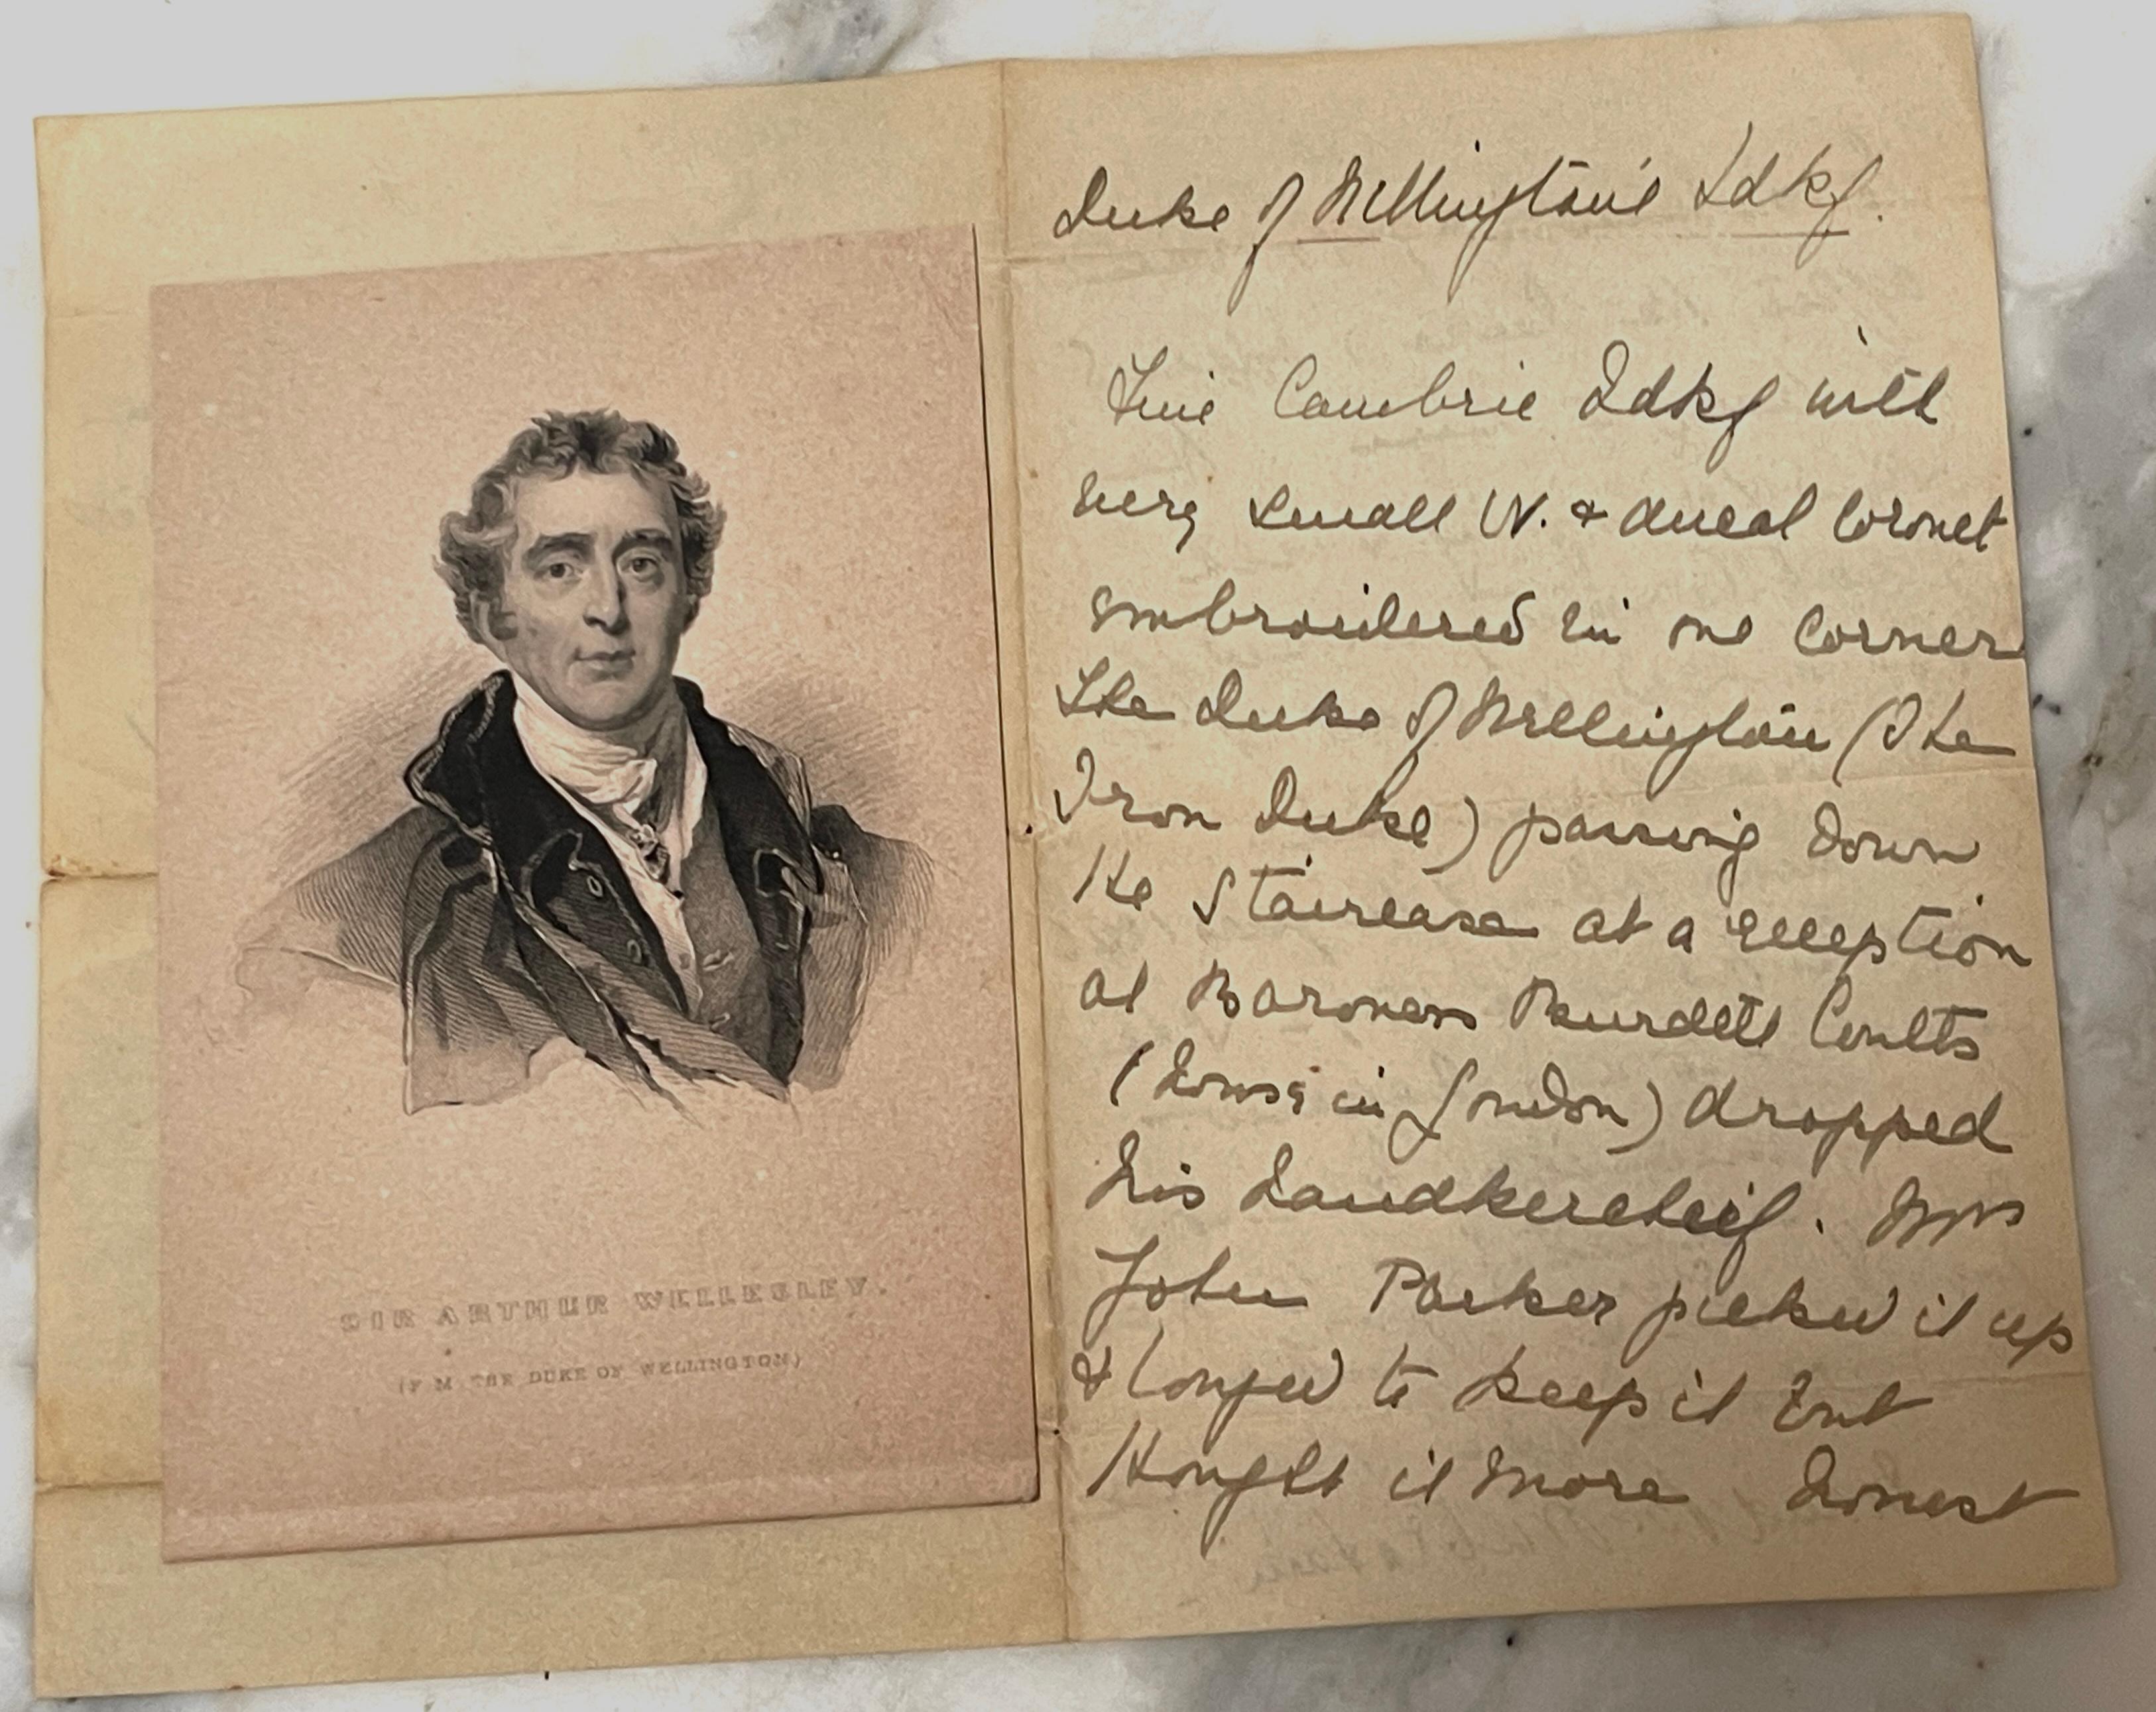 SIR ARTHUR WELLESLEY.
(F M THE DUKE OF WELLINGTON)
Duke of Wellington's Hdkf.
Fine Cambric Hdkf with
very small W. & ducal Coronet
embroidered in one corner
The Duke of Wellington (The
Iron Duke) passing down
the Staircase at a reception
at Baroness Burdett Coutts
(House in London) dropped
his Handkercheif. Mrs
John Parker picked it up
& longed to keep it but
thought it more honest